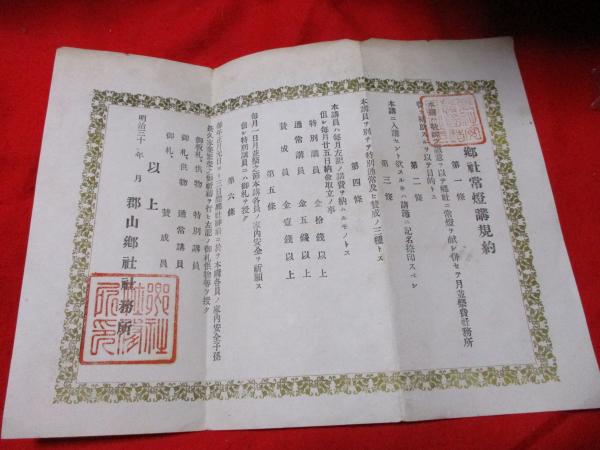 鄕社常燈講規約
第一條
本講ハ敬神ノ誠意ヲ以テ鄕社ニ常燈ヲ献シ併セテ月並祭費社務所
費ヲ補助スルヲ以テ目的トス
第二條
本講ニ入講セント欲スルモノハ講簿ニ記名捺印スベシ
第三條
本講員ヲ別チテ特別通常及ヒ賛成ノ三種トス
第四條
本講員ハ每月左記ノ講費ヲ納ムルモノトス
但シ每月廿五日納金取立ノ事
特別講員 金拾錢以上
通常講員 金五錢以上
賛成員 金壹錢以上
第五條
每月一日月並祭之節本講各員ノ家內安全ヲ祈願ス
但シ特別講員ニハ御札ヲ授ク
第六條
每年正月元日ヨリ三日間鄕社神前ニ於テ本講各員ノ家內安全子孫
長久家業繁榮之御祈禱ヲ行ヒ左記ノ御札供物等ヲ授ク
御板札、供物 特別講員
御札、供物 通常講員
御札、 賛成員
以上
明治三十年 月
郡山鄕社社務所